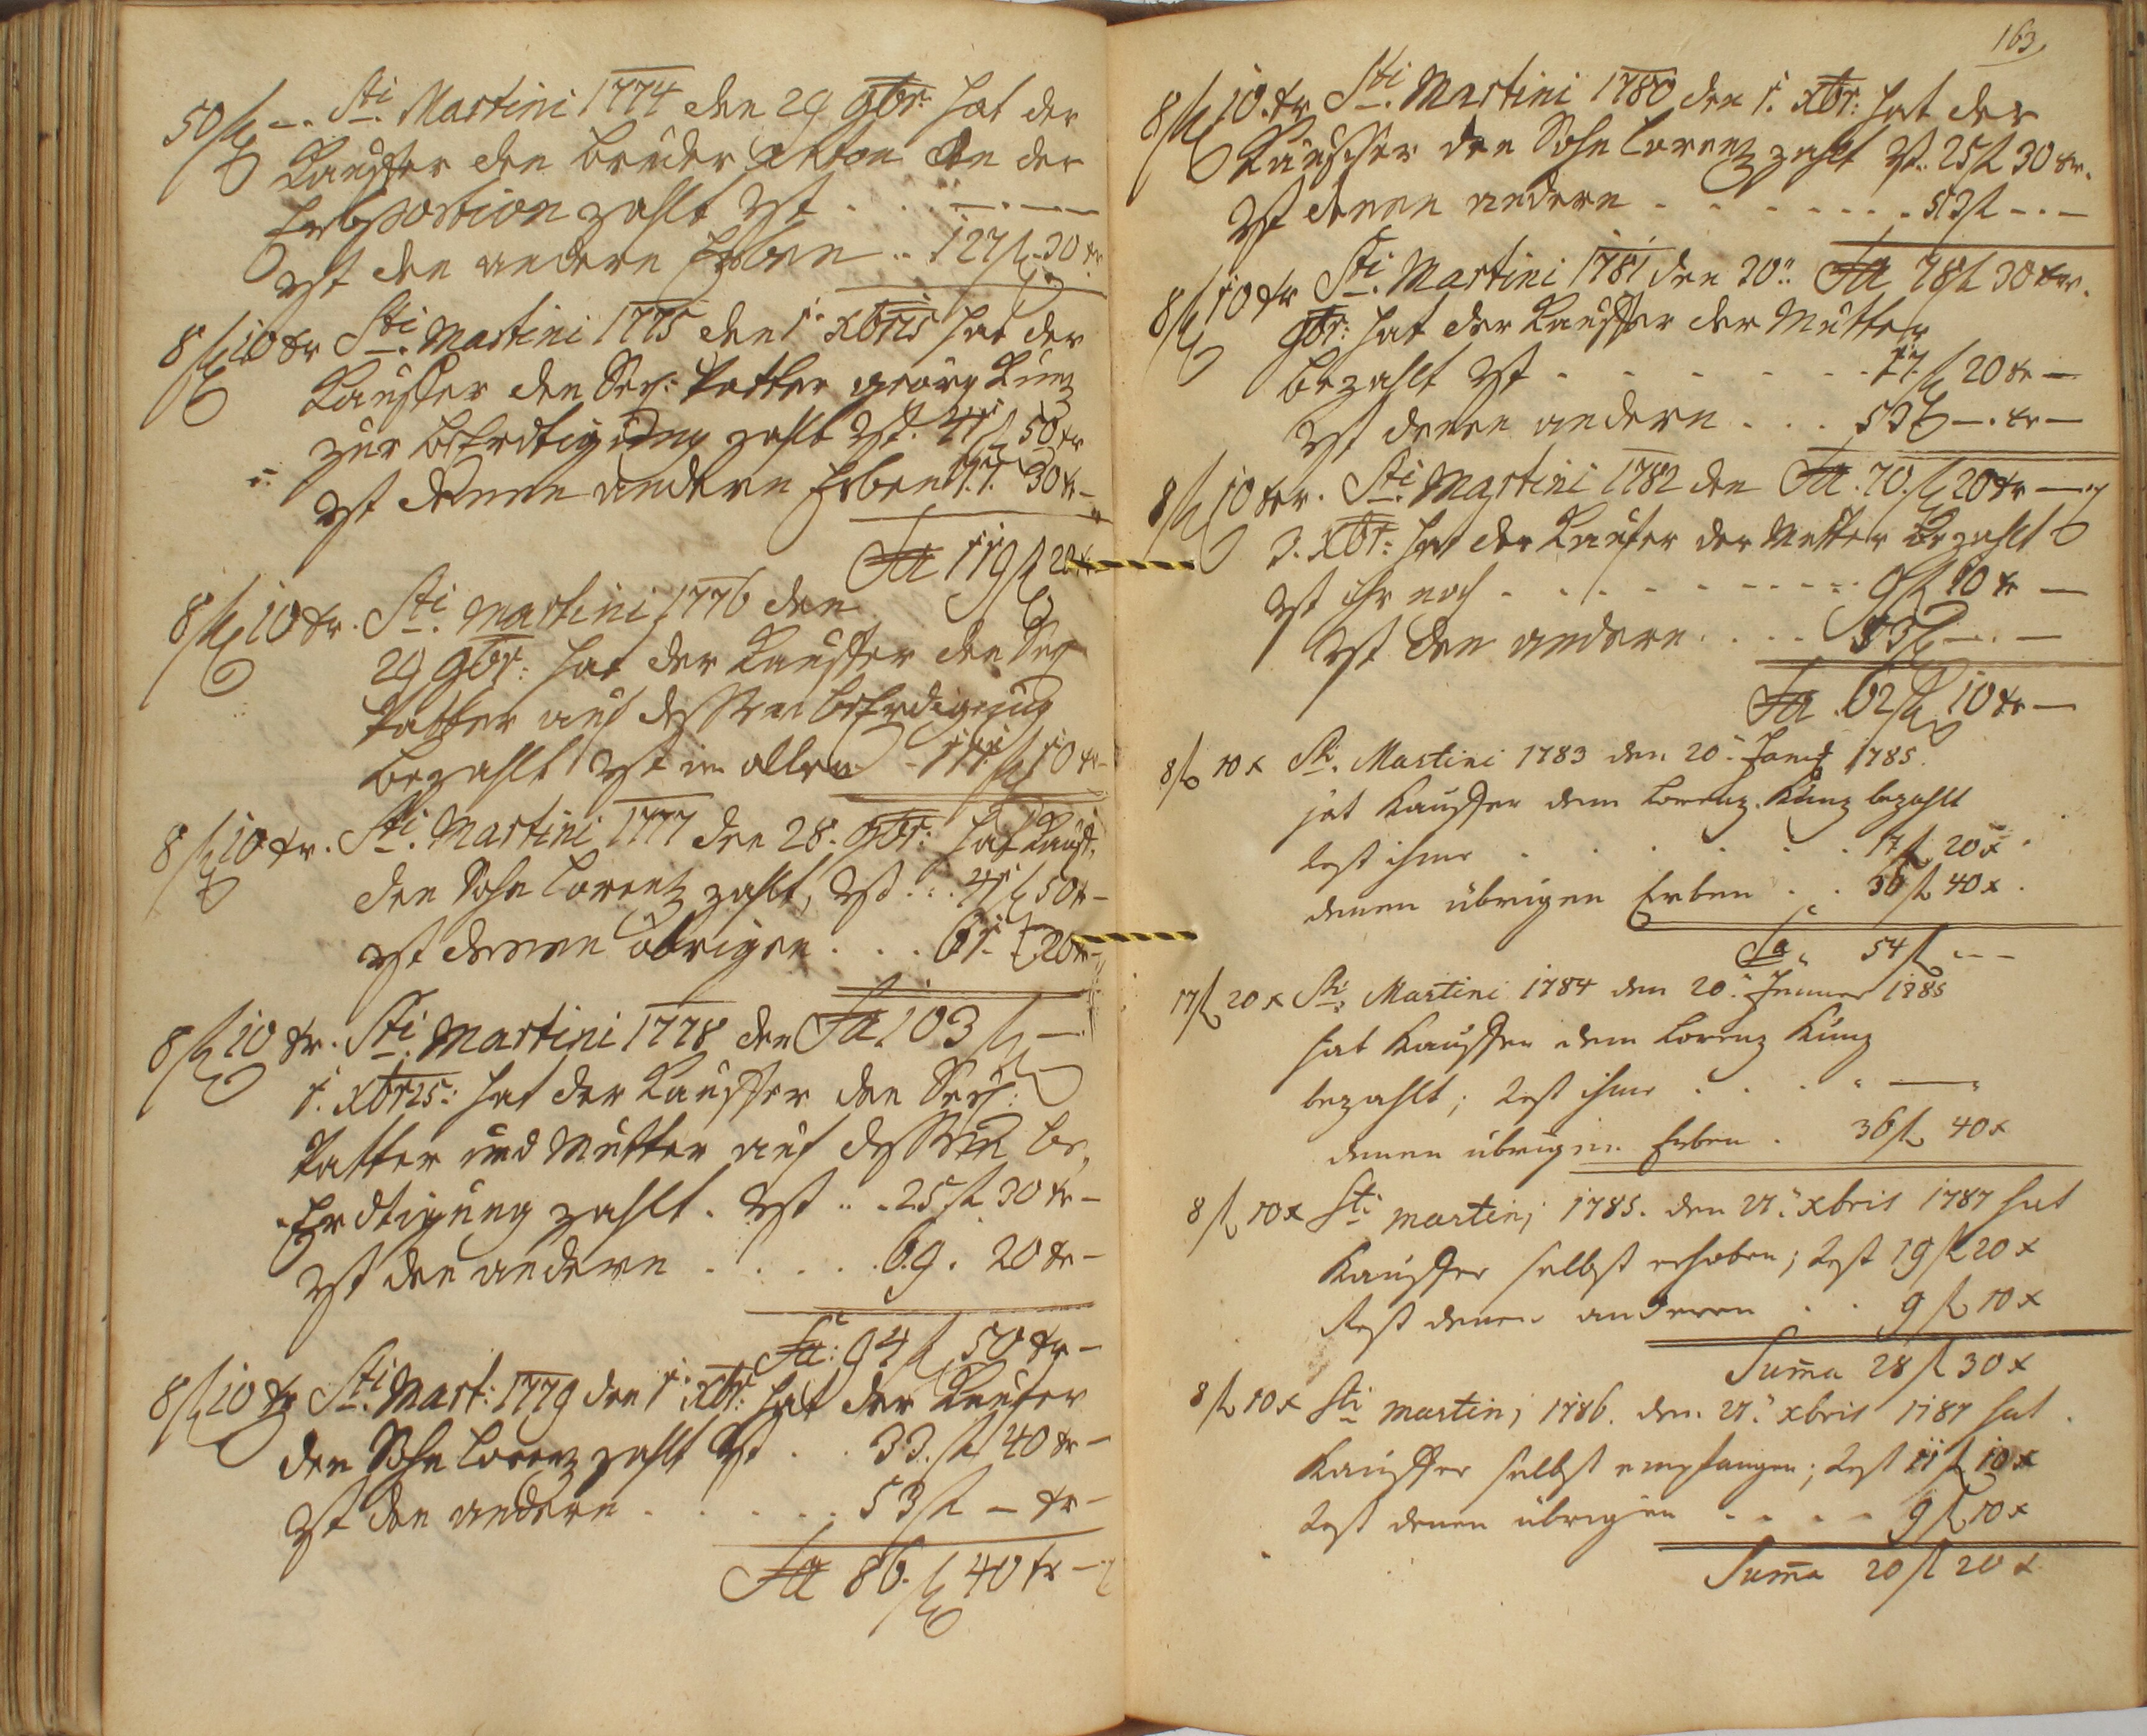 50 f — Sti. Martini 1774 den 29 9br: hat der
Kauffer den Bruder Anton an der
Erbportion zahlt Rst . . . — . —
Rst den andern Erben .. 127 f 30 kr
8 f 10 kr Sti. Martini 1775 den 1. Xbris hat der
Kauffer den Sey: Vatter georg Kunz
zur beErdtigung zahlt Rst. 41 f 50 kr
Rst denen andern Erben 77. 30 kr —
Sa 119 f 20 kr
8 f 10 kr. Sti. Martini 1776 den
29 9br: hat der Kauffer den Sey
Vatter auf dessen beErdigung
bezahlt Rst in allen - 111 f 10 kr
8 f 10 kr. Sti. Martini 1777 den 28. 9br: hat Kauff.
den Sohn Lorentz zahlt, Rst . . . 41 f 50 kr —
Rst denen übrigen . . . 61. f 20 kr —
8 f 10 kr. Sti. Martini 1778 den Sa 103 f —
1. Xbris: hat der Kauffer den Sey:
Vatter und Mutter auf dessen be,
Erdtigung zahlt. Rst .. . 25 f 30 kr —
Rst den andern . . . . . 69. 20 kr —
Sa: 94 f 50 kr —
8 f 10 kr Sti. Mart: 1779 den 1. Xbr: hat der Kaufer
den Sohn Lorenz zahlt Rst . . 33. f 40 kr —
Rst den andern . . . . . . 53 f — kr —
Sa 86. f 40 kr —
163
8 f 10. kr Sti. Martini 1780 den 1. Xbr: hat der
Kauffer den Sohn Lorentz zahlt Rst. 25 f 30 kr.
Rst denen andern - - - - - - . 53 f — . —
8 f 10 kr Sti. Martini 1781 den 30.. Sa 78 f 30 kr.
9br: hat der Kauffer der Mutter
bezahlt Rst - - - - - - 17 f 20 kr —
Rst denen andern . . . 53 f — . kr —
8 f 10 kr. Sti. Martini 1782 den Sa. 70. f 20 kr —
3. Xbr: hat der Kaufer der Mutter bezahlt
Rst ihr noch . . . . . . . . . 9 f 10 kr —
Rst den andern . . . . 53 f — . —
Sa . 62 f 10 kr —
8 f 10 x Sti. Martini 1783 den 20. 1785.
hat Kauffer dem Lorenz Kunz bezahlt
Rest ihme . . . . . . 17 f 20 x .
denen übrigen Erben . . 36 f 40 x .
Sa. 54 f — — —
17 f 20 x Sti. Martini 1784 den 20. Jenner 1785
hat Kauffer dem Lorenz Kunz
bezahlt; Rest ihme . . . " — "
denen übrigen Erben . 36 f 40 x
8 f 10 x Sti martinj 1785. den 27. xbris 1787 hat
Kauffer selbst erhoben; Rest 19 f 20 x
Rest denen anderen . . 9 f 10 x
Suma 28 f 30 x
8 f 10 x Sti martinj 1786. den 27. xbris 1787 hat
Kauffer selbst empfangen; Rest 11 f 10 x
Rest denen übrigen - - - - 9 f 10 x
Suma 20 f 20 x